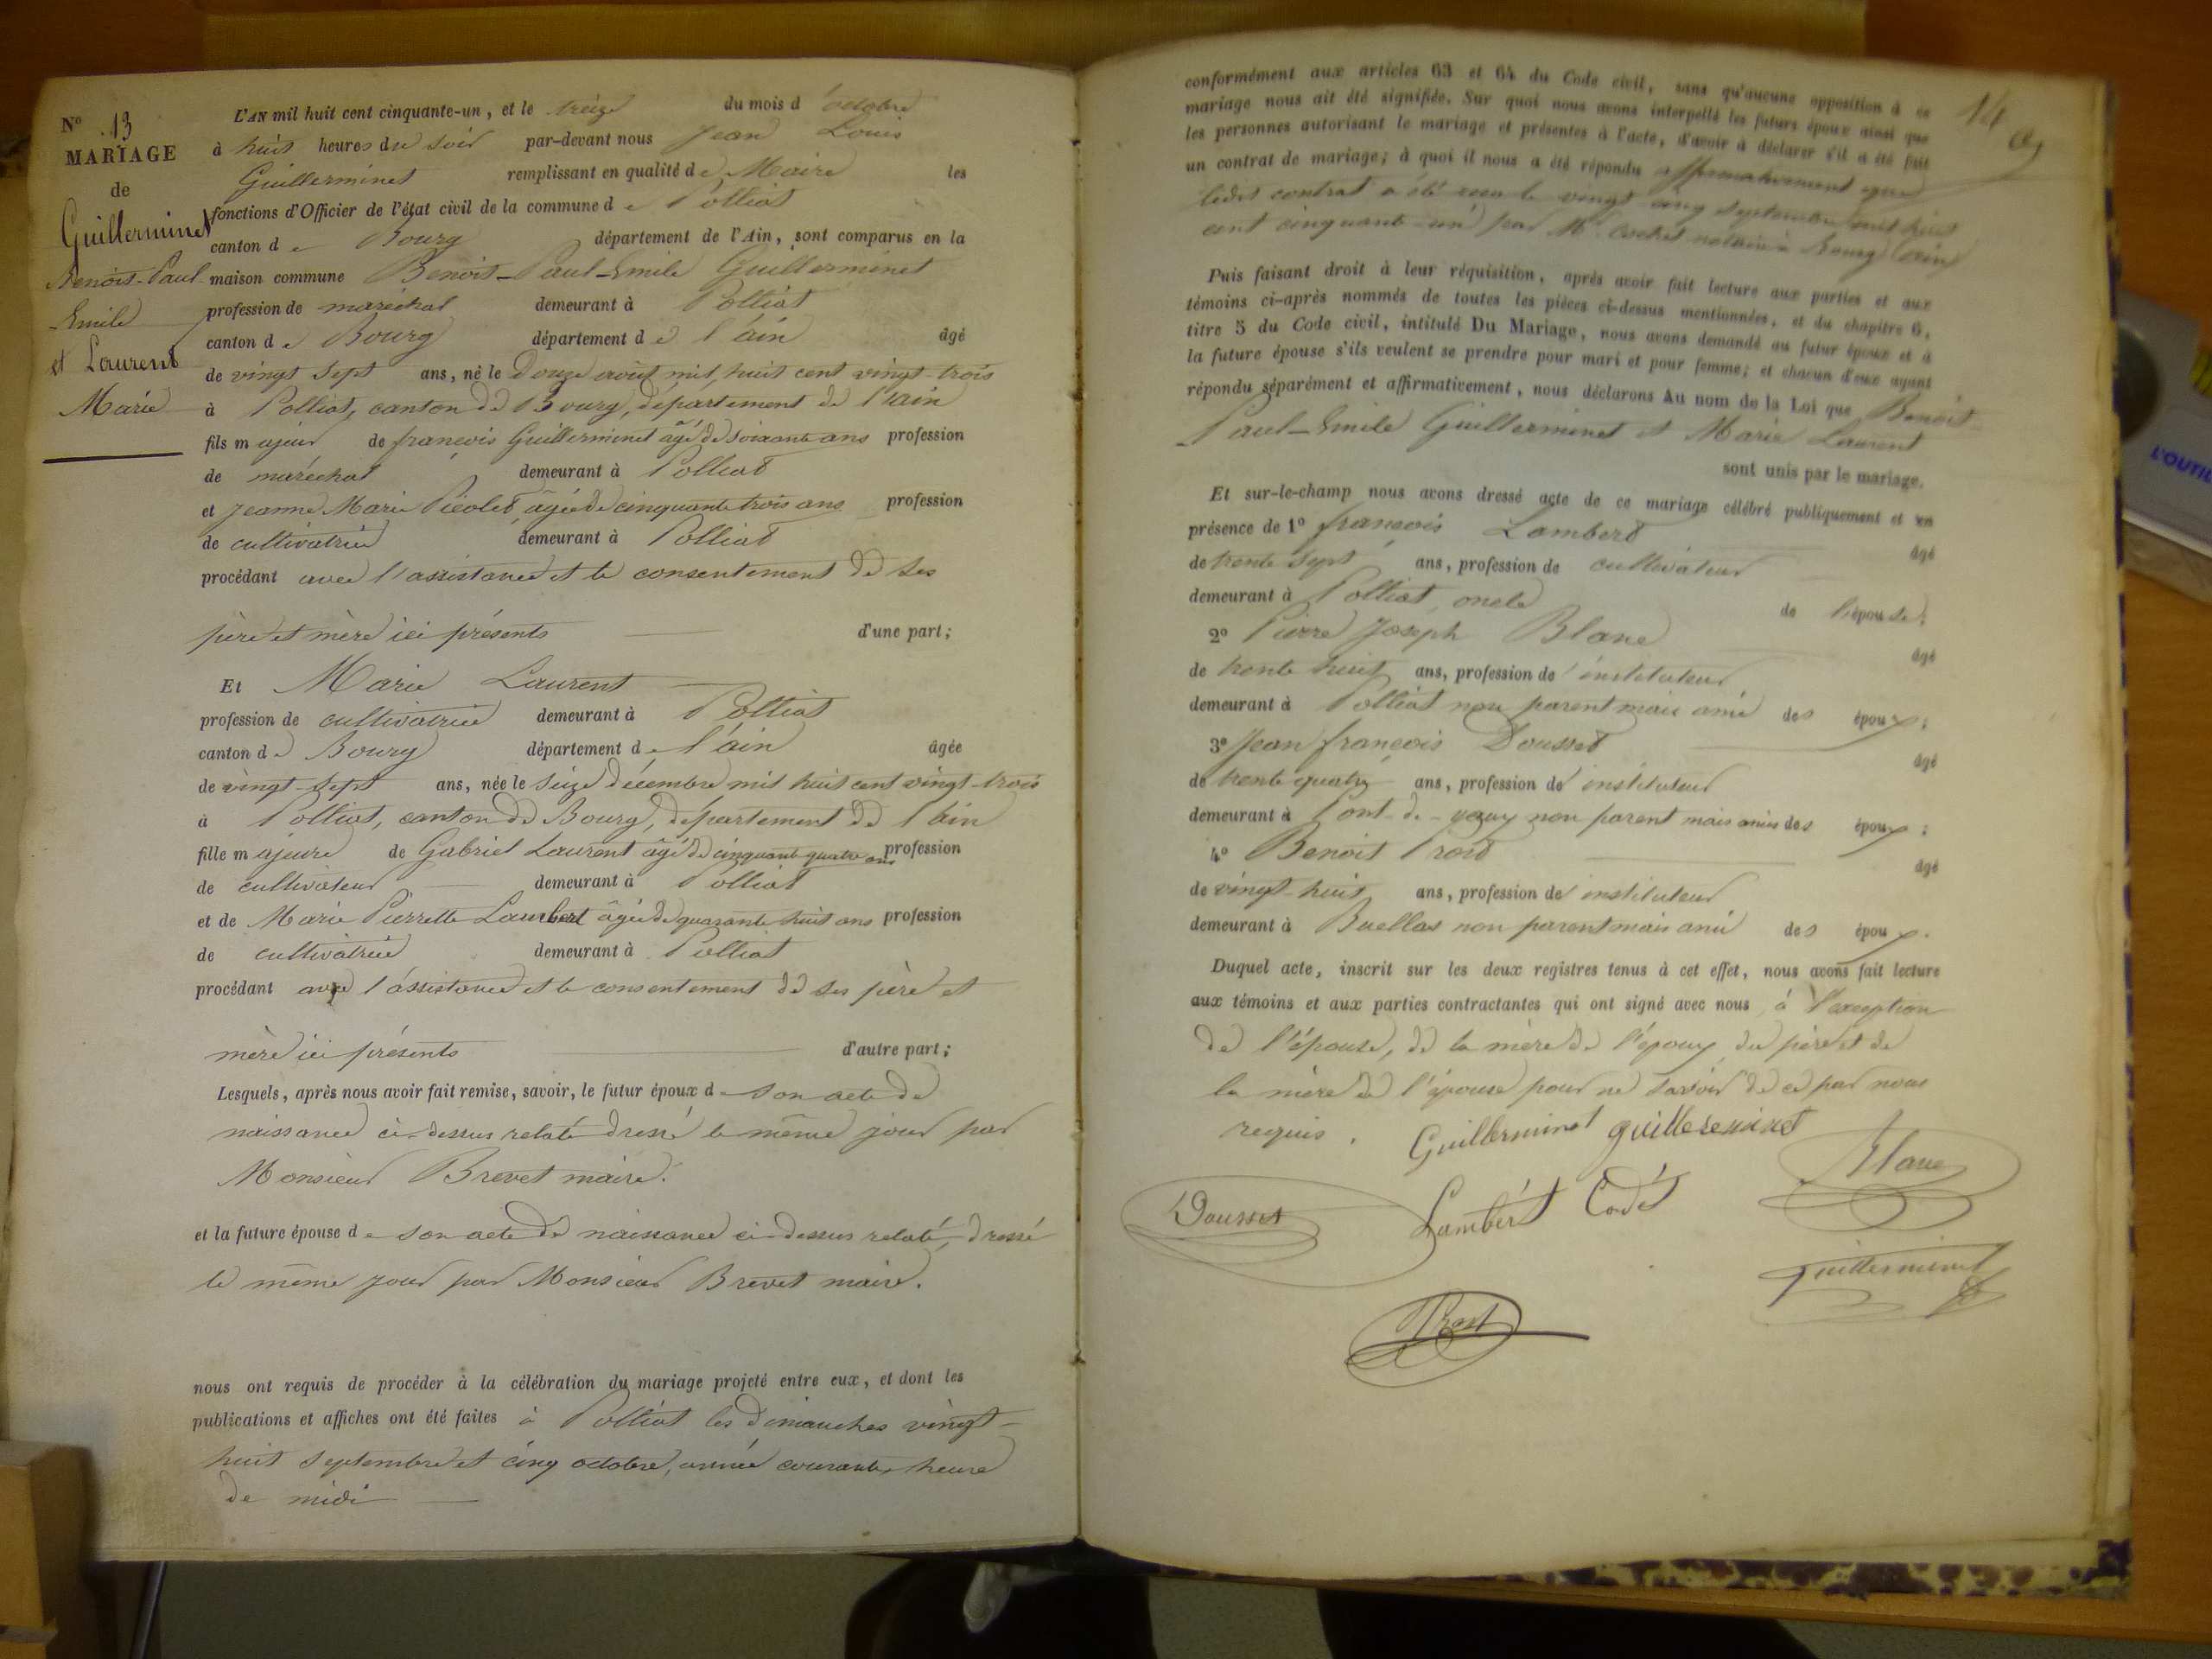 N° 13
MARIAGE
de
Guillerminet
Benoit-Paul-
Emile
et Laurent
Marie
L'AN mil huit cent cinquante-un, et le treize du mois d'octobre
à huit heures du soir par-devant nous Jean Louis
Guillerminet remplissant en qualité de Maire les
fonctions d'Officier de l'état civil de la commune de Polliat
canton de Bourg département de l'Ain, sont comparus en la
maison commune Benoit-Paul-Emile Guillerminet
profession de maréchal demeurant à Polliat
canton de Bourg département de l'ain âgé
de vingt sept ans, né le Douze août mil huit cent vingt-trois
à Polliat, canton de Bourg, département de l'ain
fils majeur de françois Guillerminet âgé de soixante ans profession
de maréchal demeurant à Polliat
et Jeanne Marie Picolet âgée de cinquante trois ans profession
de cultivatrice demeurant à Polliat
procédant avec l'assistance et le consentement de ses
père et mère ici présents d'une part;
Et Marie Laurent
profession de cultivatrice demeurant à Polliat
canton de Bourg département de l'ain âgée
de vingt-sept ans, née le seize décembre mil huit cent vingt-trois
à Polliat, canton de Bourg, département de l'ain
fille majeure de Gabriel Laurent âgé de cinquante quatre ans profession
de cultivateur demeurant à Polliat
et de Marie Pierrette Lambert âgée de quarante huit ans profession
de cultivatrice demeurant à Polliat
procédant avec l'assistance et le consentement de ses père et
mère ici présents d'autre part;
Lesquels, après nous avoir fait remise, savoir, le futur époux de son acte de
naissance ci-dessus relaté dressé le même jour par
Monsieur Brevet maire.
et la future épouse de son acte de naissance ci-dessus relaté, dressé
le même jour par Monsieur Brevet maire.
nous ont requis de procéder à la célébration du mariage projeté entre eux, et dont les
publications et affiches ont été faites à Polliat les dimanches vingt-
huit septembre et cinq octobre, année courante, heure
de midi
14
conformément aux articles 63 et 64 du Code civil, sans qu'aucune opposition à ce
mariage nous ait été signifiée. Sur quoi nous avons interpellé les futurs époux ainsi que
les personnes autorisant le mariage et présentes à l'acte, d'avoir à déclarer s'il a été fait
un contrat de mariage; à quoi il nous a été répondu affirmativement que
ledit contrat a été reçu le vingt cinq septembre mil huit
cent cinquante-un par Me. notaire à Bourg (ain)
Puis faisant droit à leur réquisition, après avoir fait lecture aux parties et aux
témoins ci-après nommés de toutes les pièces ci-dessus mentionnées, et du chapitre 6,
titre 5 du Code civil, intitulé Du Mariage, nous avons demandé au futur époux et à
la future épouse s'ils veulent se prendre pour mari et pour femme; et chacun d'eux ayant
répondu séparément et affirmativement, nous déclarons Au nom de la Loi que Benoit-
Paul-Emile Guillerminet et Marie Laurent
sont unis par le mariage.
Et sur-le-champ nous avons dressé acte de ce mariage célébré publiquement et en
présence de 1° françois Lambert âgé
de trente sept ans, profession de cultivateur
demeurant à Polliat, oncle de l'épouse;
2° Pierre Joseph Blanc âgé
de trente huit ans, profession de instituteur
demeurant à Polliat non parent mais ami des époux;
3° Jean françois Dousset âgé
de trente quatre ans, profession de instituteur
demeurant à Pont-de-veyle non parent mais ami des époux;
4° Benoit Prost âgé
de vingt-huit ans, profession de instituteur
demeurant à Buellas non parent mais ami des époux.
Duquel acte, inscrit sur les deux registres tenus à cet effet, nous avons fait lecture
aux témoins et aux parties contractantes qui ont signé avec nous, à l'exception
de l'épouse, de la mère de l'époux, du père et de
la mère de l'épouse pour ne savoir de ce par nous
requis.
Guillerminet guillereminet
Blanc
Dousset
Lambert Cadet
Guillerminet
Prost
L'OUTIL